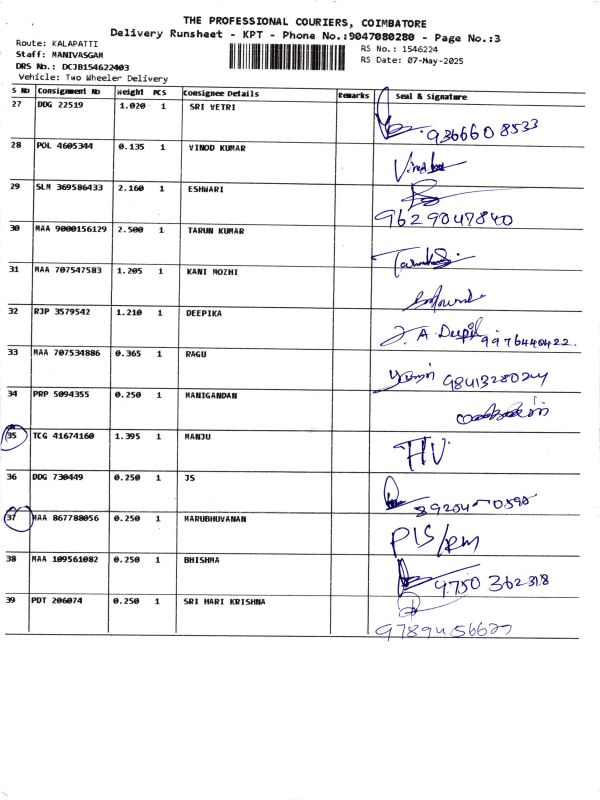 THE PROFESSIONAL COURIERS, COIMBATORE
Delivery Runsheet - KPT - Phone No.:9047080280 - Page No.:3
Route: KALAPATTI
Staff: MANIVASGAM
DRS No.: DCJB154622403
Vehicle: Two Wheeler Delivery
RS No.: 1546224
RS Date: 07-May-2025
S No Consignment No Weight PCS Consignee Details Remarks Seal & Signature
27 DDG 22519 1.020 1 SRI VETRI 9366608533
28 POL 4605344 0.135 1 VINOD KUMAR
29 SLM 369586433 2.160 1 ESHWARI 9629047840
30 MAA 9000156129 2.500 1 TARUN KUMAR
31 MAA 707547583 1.205 1 KANI MOZHI
32 RJP 3579542 1.210 1 DEEPIKA J. A. Deepi 9976440422.
33 MAA 707534886 0.365 1 RAGU 9841328024
34 PRP 5094355 0.250 1 MANIGANDAN
35 TCG 41674160 1.395 1 MANJU
36 DDG 730449 0.250 1 JS
37 MAA 867788056 0.250 1 MARUBHUVANAN
38 MAA 109561082 0.250 1 BHISHMA 9750362318
39 PDT 206074 0.250 1 SRI HARI KRISHNA